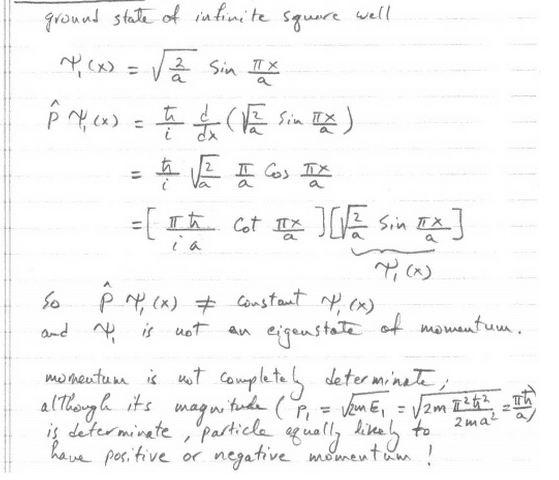 ground state of infinite square well
Ψ₁(x) = √(2/a) sin πx/a
p̂ Ψ₁(x) = ħ/i d/dx (√(2/a) sin πx/a)
= ħ/i √(2/a) π/a cos πx/a
= [πħ/ia cot πx/a][√(2/a) sin πx/a]
Ψ₁(x)
So p̂ Ψ₁(x) ≠ constant Ψ₁(x)
and Ψ₁ is not an eigenstate of momentum.
momentum is not completely determinate,
although its magnitude (p₁ = √(2mE₁) = √(2m π²ħ²/2ma²) = πħ/a)
is determinate, particle equally likely to
have positive or negative momentum!